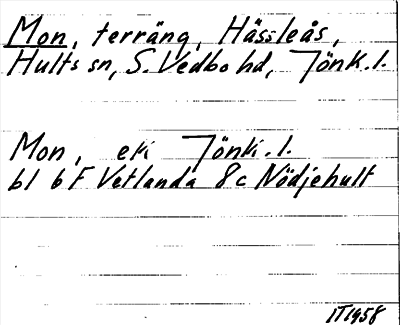 Mon, terräng, Hässleås,
Hults sn, S. Vedbo hd, Jönk. l.
Mon, ek Jönk. l.
bl 6 F Vetlanda 8c Nödjehult
IT1958